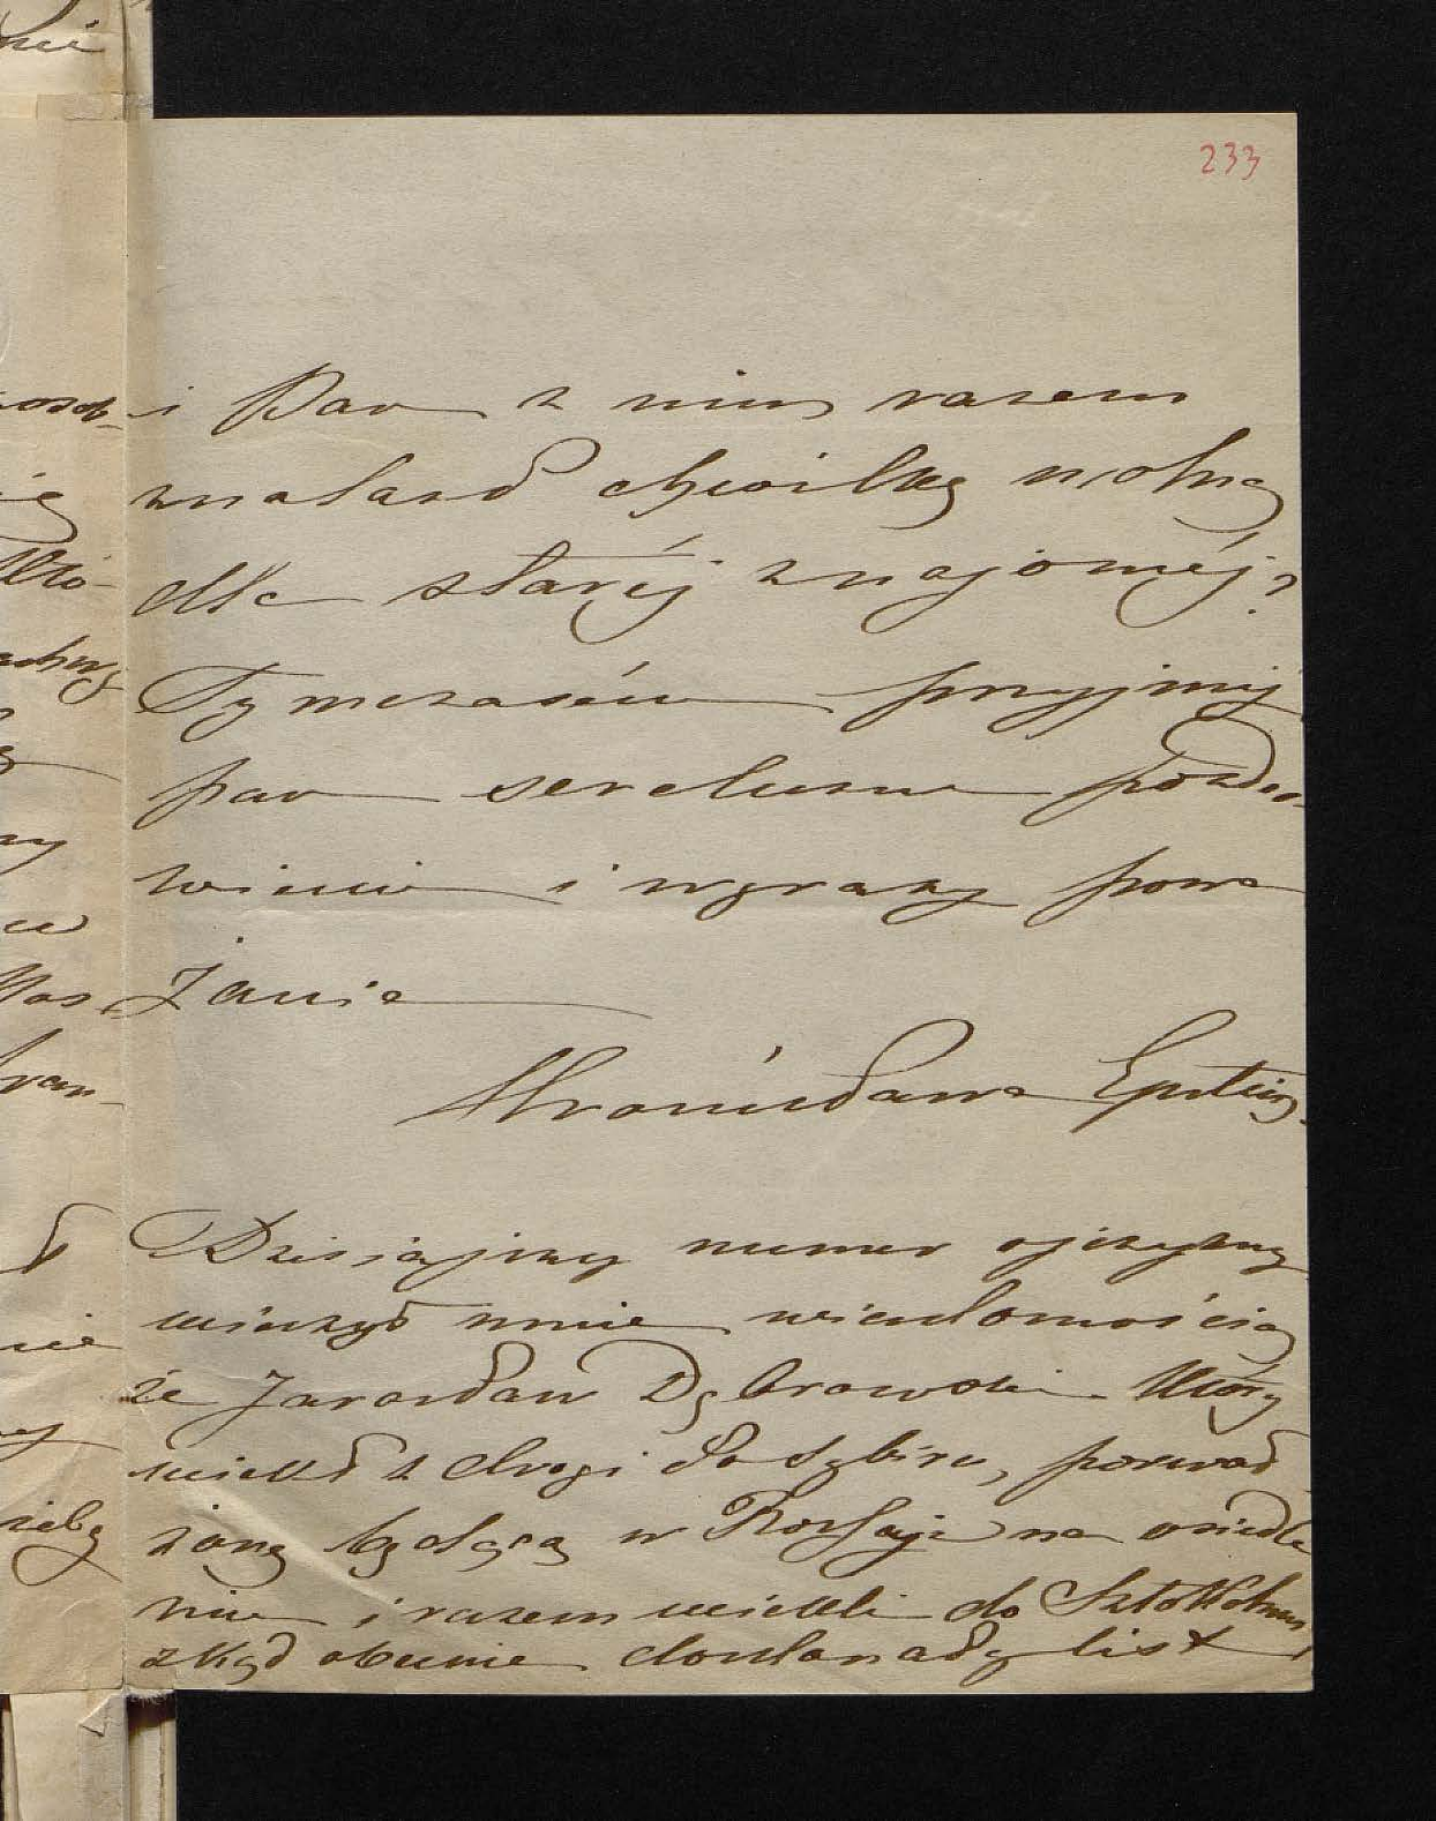 233
i Pan z nim razem
znalazł chwilkę wolną
dla starej znajomej?
Tymczasém przyjmij
pan serdeczne pozdro-
wienie i wyrazy powa
żania
Epstein
Dzisiajszy numer ojczyzny
ucieszył mnie wiadomością
że Jarosław Dąbrowski który
uciekł z drogi do Sybiru, porwał
żonę będącą w Rossyi na osiedle
niu i razem uciekli do Sztokholmu,
zkąd obecnie list